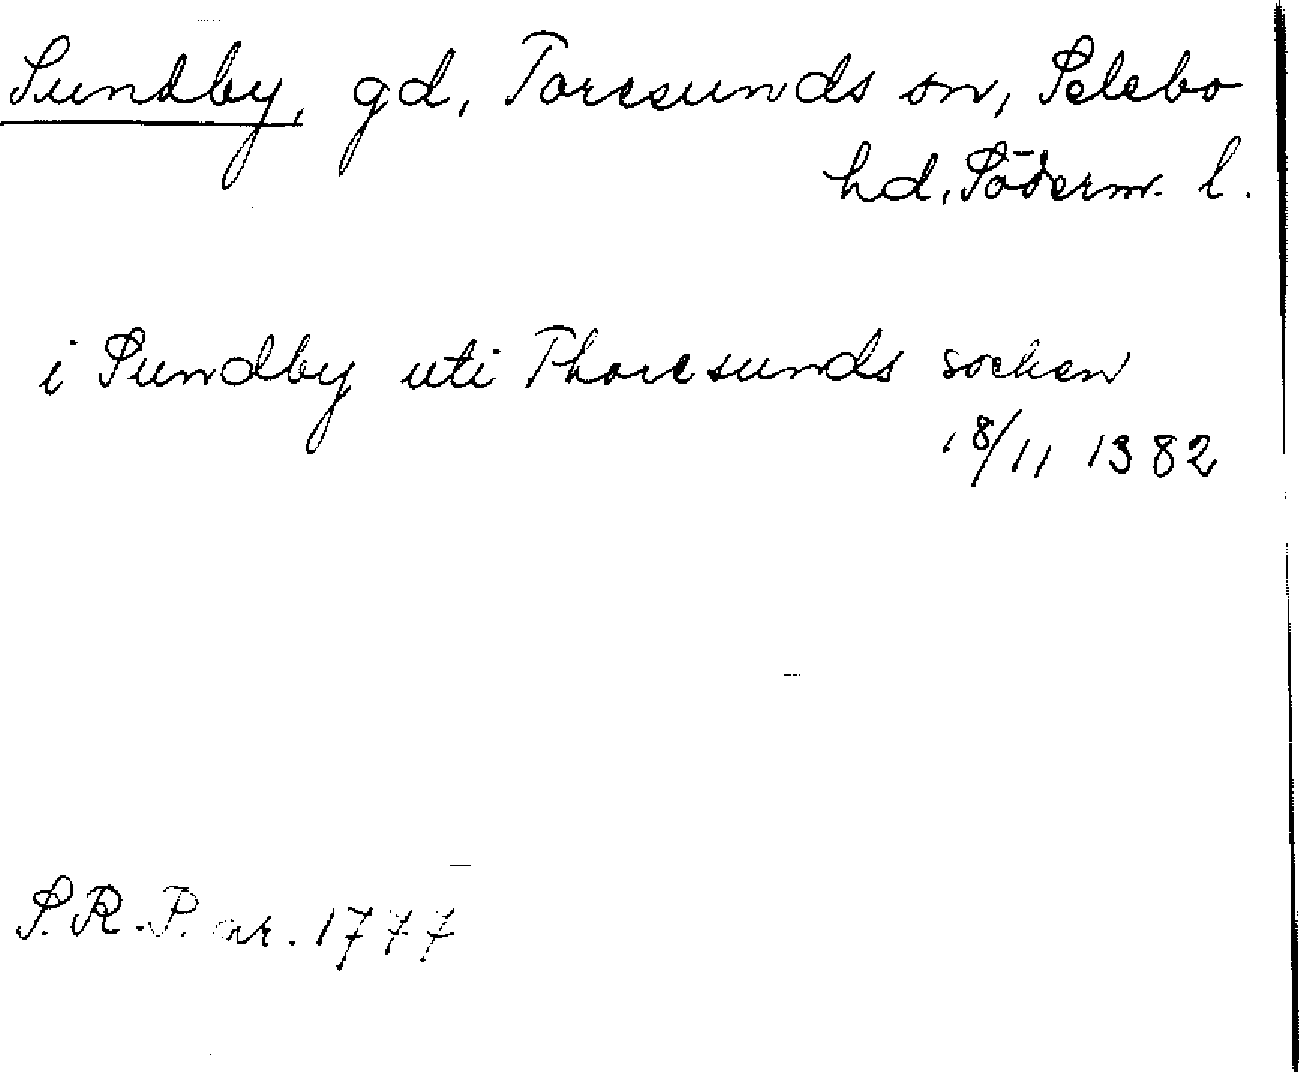 Sundby, gd, Toresunds sn, Selebo
hd, Söderm. l.
i Sundby uti Thoresunds socken
18/11 1382
S.R.P. nr. 1777